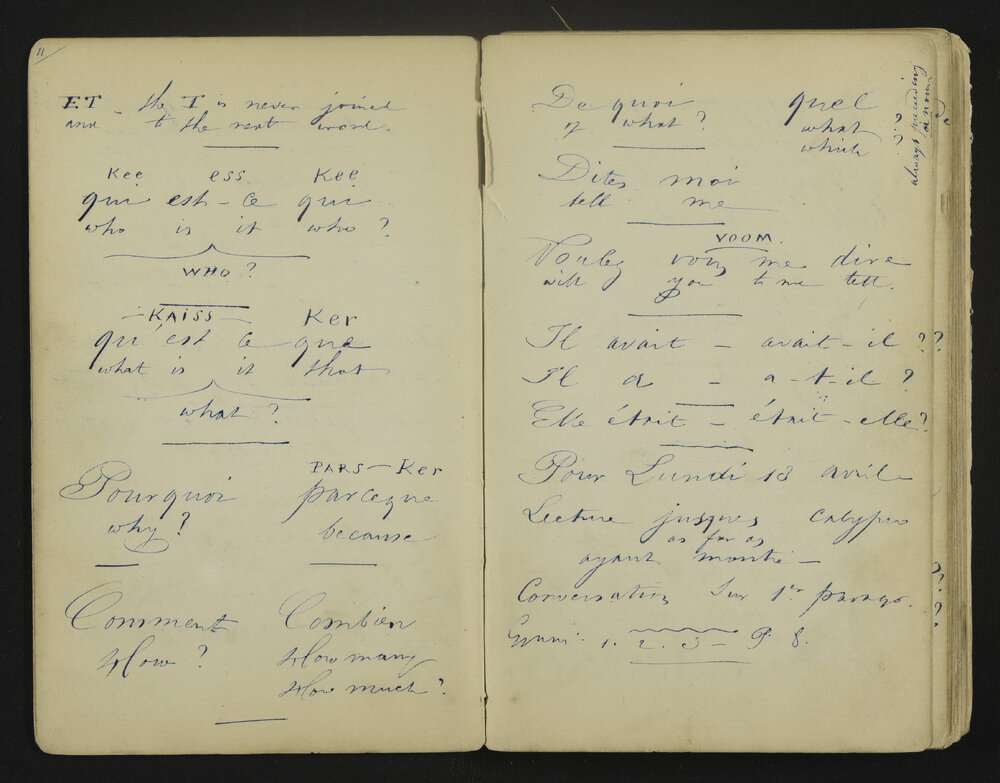 11
ET - the T is never joined
and to the next word.
Kee ess Kee
qui est-ce qui
who is it who?
WHO?
KAISS Ker
qu'est ce que
what is it that
what?
PARS-Ker
Pourquoi parceque
why? because
Comment Combien
How? How many
How much?
De quoi quel
of what? what ?
which ?
always preceding
a noun
Dites moi
tell me
VOOM
Voulez vous me dire
will you to me tell.
Il avait - avait-il ??
Il a - a-t-il ?
Elle était - était-elle?
Pour Lundi 18 avril
Lecture jusques calypso
as far as
ayant montré -
Conversation Sur 1er parag.
1. 2. 3 - P 8.